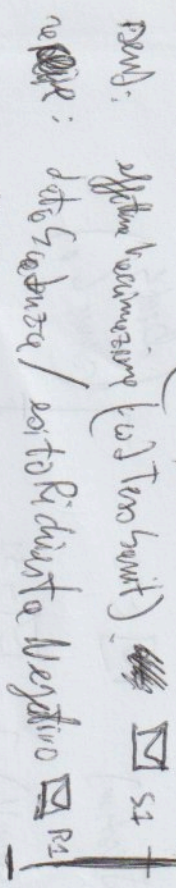 send: effettua vaccinazione (:cod Tess Sanit) S1
receive: dataScadenza / esitoRichiesta Negativo R1